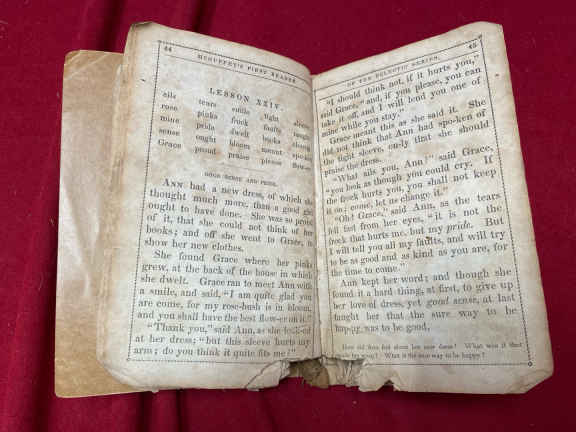 44
McGUFFEY'S FIRST READER
LESSON XXIV.
ails tears suffer light
rose pinks frock faults
mine pride dwelt books
sense ought bloom meant spo-ken
Grace proud praise please flow-er
GOOD SENSE AND PRIDE.
ANN had a new dress, of which she
thought much more, than a good girl
ought to have done. She was so proud
of it, that she could not think of her
books; and off she went to Grace, to
show her new clothes.
She found Grace where her pinks
grew, at the back of the house in which
she dwelt. Grace ran to meet Ann with
a smile, and said, "I am quite glad you
are come, for my rose-bush is in bloom,
and you shall have the best flow-er on it."
"Thank you," said Ann, as she look-ed
at her dress; "but this sleeve hurts my
arm; do you think it quite fits me?"
45
OF THE ECLECTIC SERIES.
"I should think not, if it hurts you,"
said Grace, "and, if you please, you can
take it off, and I will lend you one of
mine while you stay."
Grace meant this as she said it. She
did not think that Ann had spo-ken of
the tight sleeve, only that she should
praise the dress.
"What ails you, Ann?" said Grace,
"you look as though you could cry. If
the frock hurts you, you shall not keep
it on; come, let me change it."
"Oh! Grace," said Ann, as the tears
fell fast from her eyes, "it is not the
frock that hurts me, but my pride. But
I will tell you all my faults, and will try
to be as good and as kind as you are, for
the time to come."
Ann kept her word; and though she
found it a hard thing, at first, to give up
her loved dress, yet good sense, at last
taught her that the sure way to be
happy, was to be good,
How did Ann feel about her new dress? What was it that
made her proud? What is the sure way to be happy?